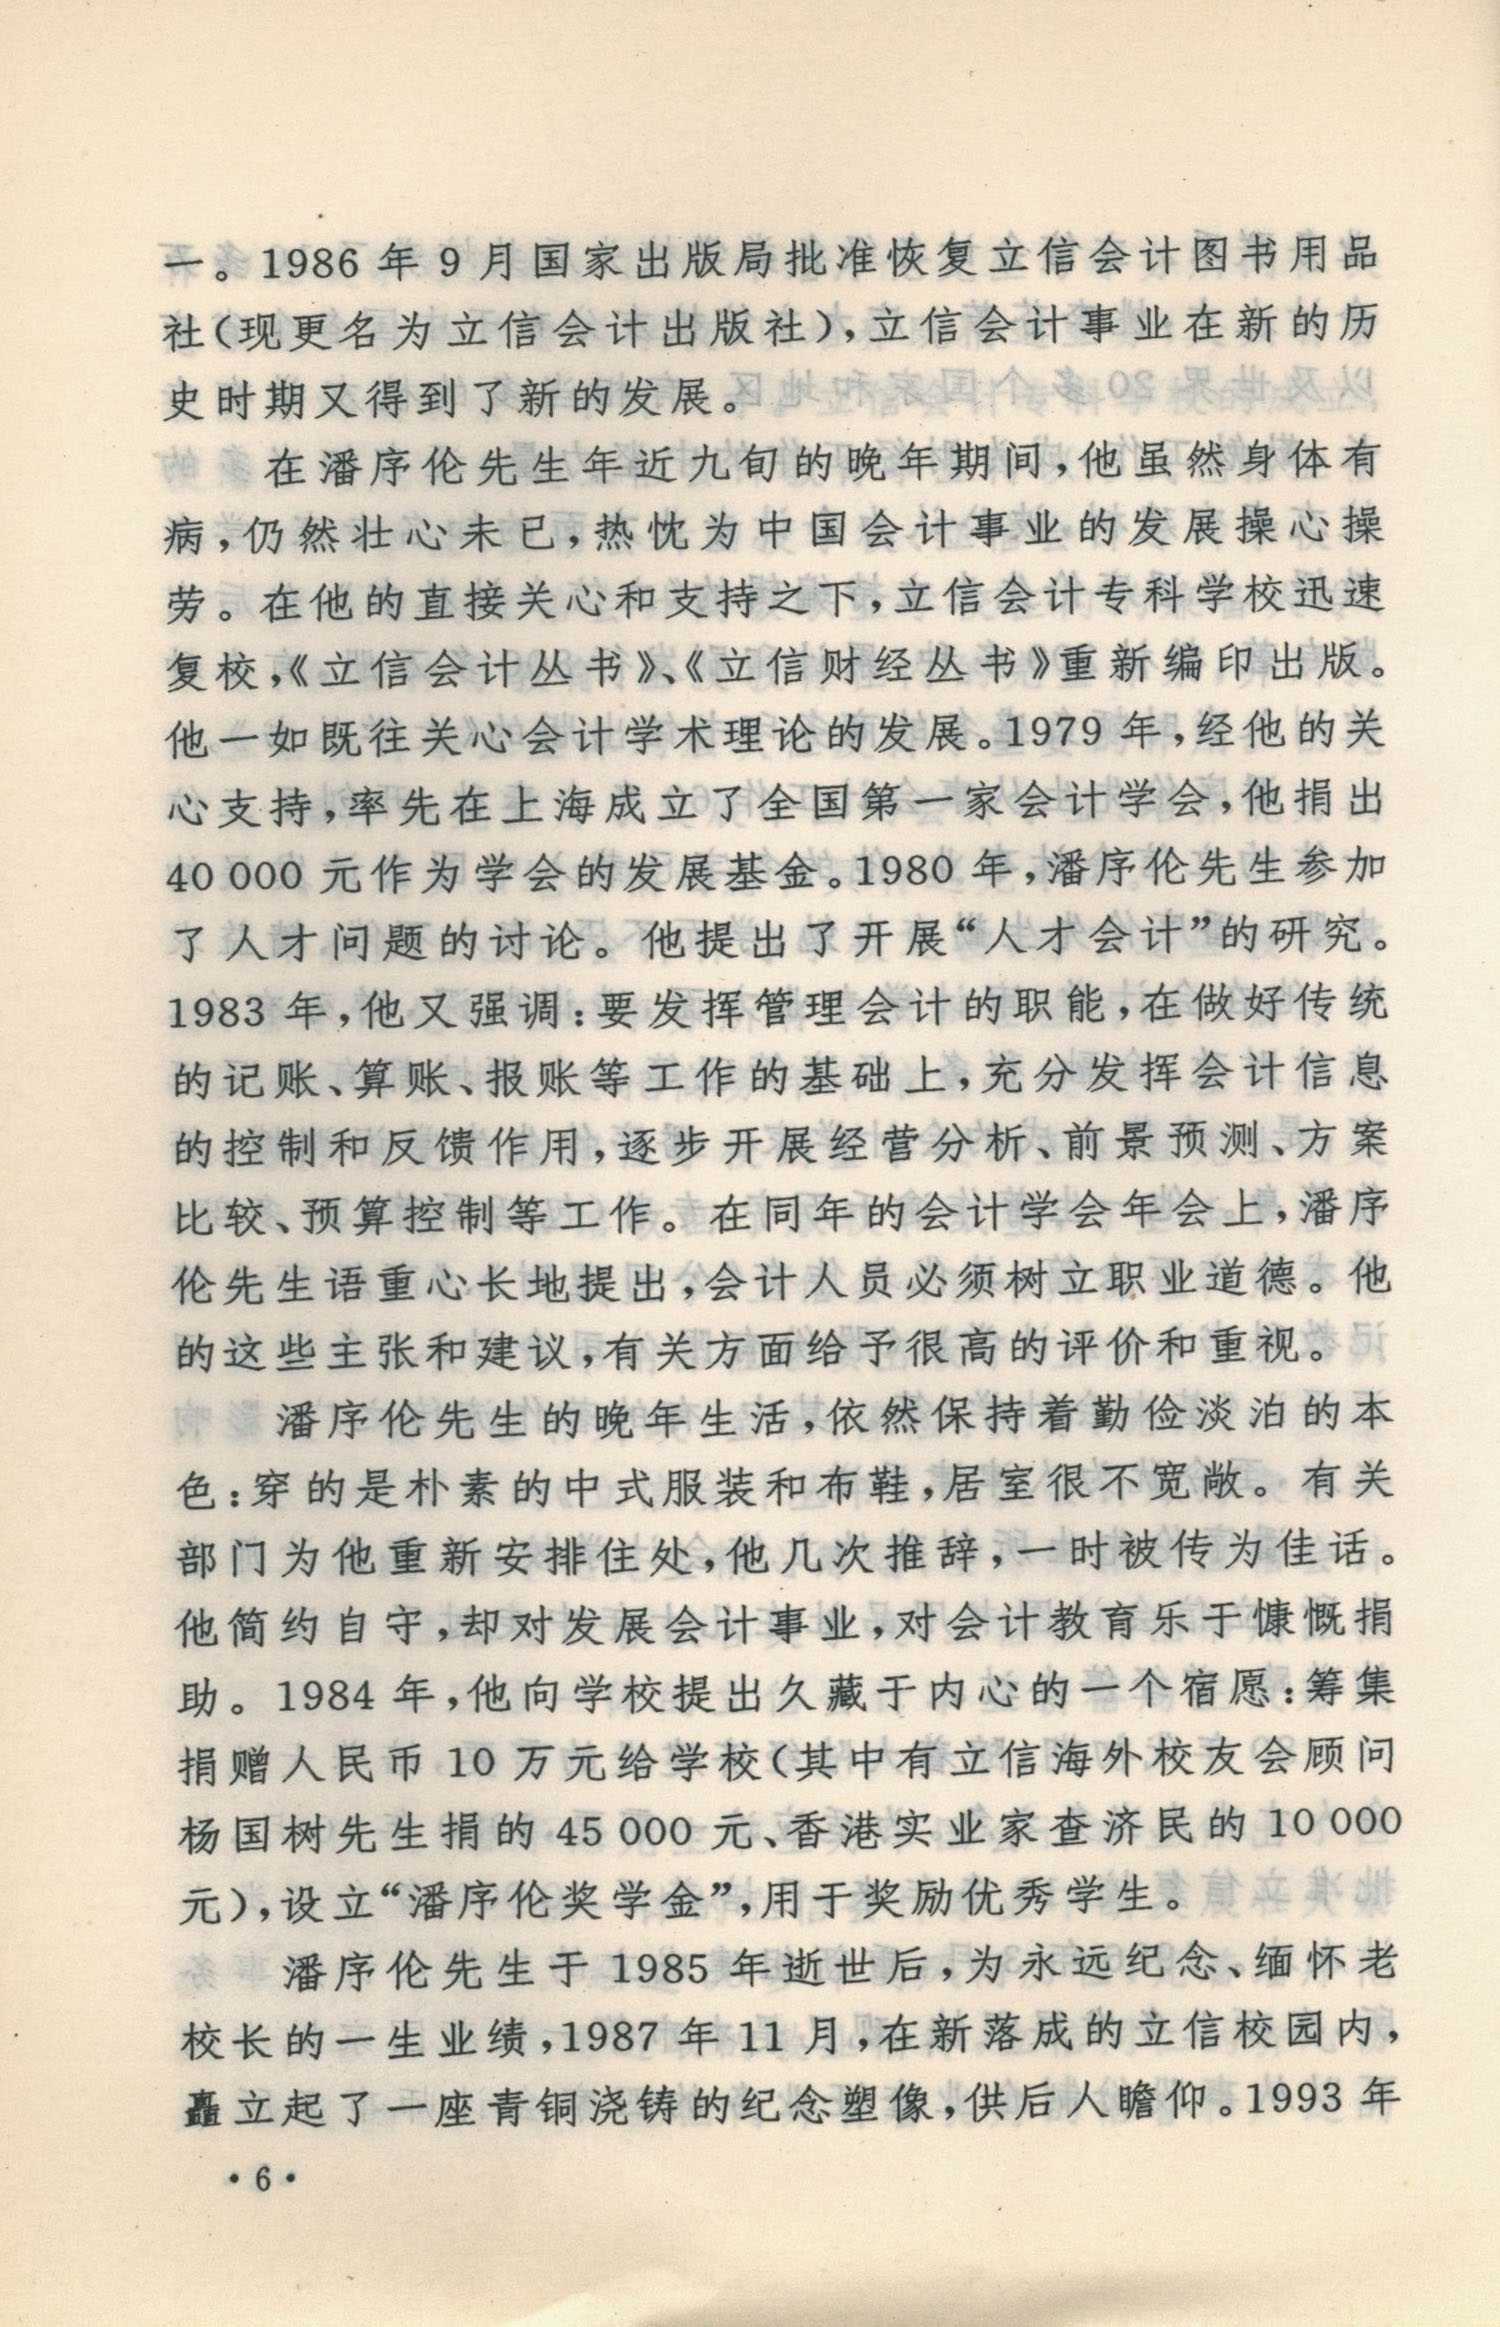 一。1986 年 9 月国家出版局批准恢复立信会计图书用品
社(现更名为立信会计出版社),立信会计事业在新的历
史时期又得到了新的发展。
在潘序伦先生年近九旬的晚年期间,他虽然身体有
病,仍然壮心未已,热忱为中国会计事业的发展操心操
劳。在他的直接关心和支持之下,立信会计专科学校迅速
复校,《立信会计丛书》、《立信财经丛书》重新编印出版。
他一如既往关心会计学术理论的发展。1979 年,经他的关
心支持,率先在上海成立了全国第一家会计学会,他捐出
40 000 元作为学会的发展基金。1980 年,潘序伦先生参加
了人才问题的讨论。他提出了开展“人才会计”的研究。
1983 年,他又强调:要发挥管理会计的职能,在做好传统
的记账、算账、报账等工作的基础上,充分发挥会计信息
的控制和反馈作用,逐步开展经营分析、前景预测、方案
比较、预算控制等工作。在同年的会计学会年会上,潘序
伦先生语重心长地提出,会计人员必须树立职业道德。他
的这些主张和建议,有关方面给予很高的评价和重视。
潘序伦先生的晚年生活,依然保持着勤俭淡泊的本
色:穿的是朴素的中式服装和布鞋,居室很不宽敞。有关
部门为他重新安排住处,他几次推辞,一时被传为佳话。
他简约自守,却对发展会计事业,对会计教育乐于慷慨捐
助。1984 年,他向学校提出久藏于内心的一个宿愿:筹集
捐赠人民币 10 万元给学校(其中有立信海外校友会顾问
杨国树先生捐的 45 000 元、香港实业家查济民的 10 000
元),设立“潘序伦奖学金”,用于奖励优秀学生。
潘序伦先生于 1985 年逝世后,为永远纪念、缅怀老
校长的一生业绩,1987 年 11 月,在新落成的立信校园内,
矗立起了一座青铜浇铸的纪念塑像,供后人瞻仰。1993 年
· 6 ·